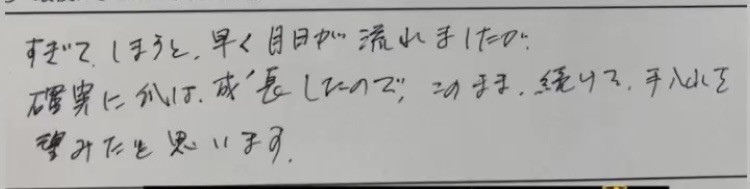 すぎてしまうと、早く月日が流れましたが、
確実に私は、成長したので、このまま、続けて、手入れを
望みたと思います。